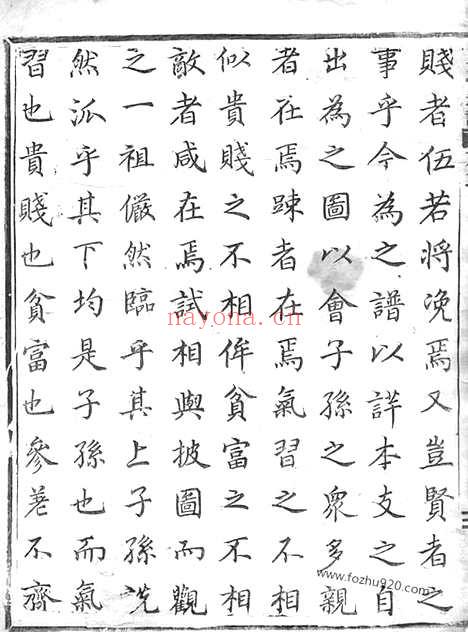 賤者伍若將浼焉又豈賢者之
事乎今為之譜以詳本支之自
出為之圖以會子孫之衆多親
者在焉踈者在焉氣習之不相
似貴賤之不相侔貧富之不相
敵者咸在焉試相與披圖而觀
之一祖儼然臨乎其上子孫詵
然派乎其下均是子孫也而氣
習也貴賤也貧富也參差不齊
nayona.cn
www.fozhu920.com